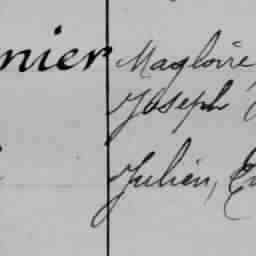 nier Magloire
Joseph
Julien,